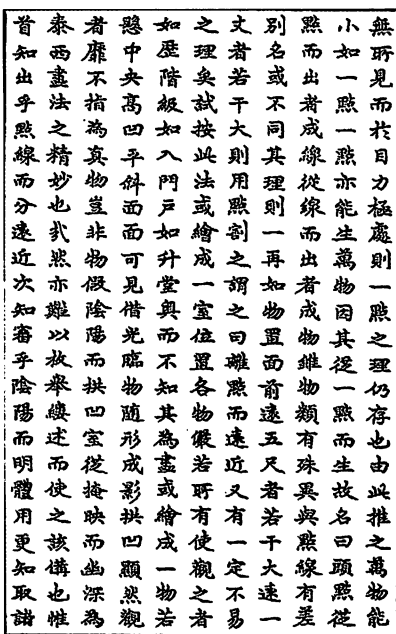 無所見而於目力極處則一點之理仍存也由此推之萬物能
小如一點一點亦能生萬物因其從一點而生故名曰頭點從
點而出者成線從線而出者成物雖物類有殊異與點線有差
別名或不同其理則一再如物置面前遠五尺者若干大遠一
丈者若干大則用點割之謂之曰離點而遠近又有一定不易
之理矣試按此法或繪成一室位置各物儼若所有使觀之者
如歷階級如入門戶如升堂奧而不知其為畫或繪成一物若
懸中央高凹平斜面面可見借光臨物隨形成影拱凹顯然觀
者靡不指為真物豈非物假陰陽而拱凹室從掩映而幽深為
泰西畫法之精妙也哉然亦難以枚舉縷述而使之該備也惟
首知出乎點線而分遠近次知審乎陰陽而明體用更知取諸